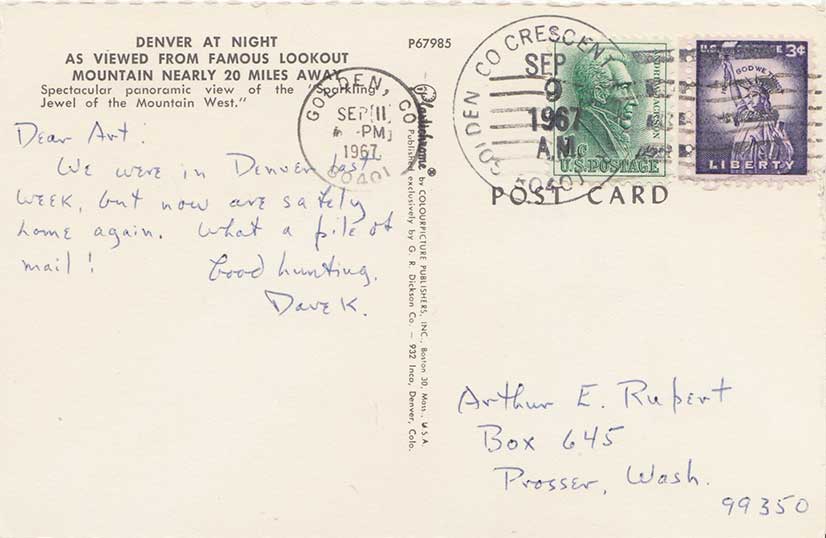 DENVER AT NIGHT
AS VIEWED FROM FAMOUS LOOKOUT
MOUNTAIN NEARLY 20 MILES AWAY
Spectacular panoramic view of the "Sparkling
Jewel of the Mountain West."
Dear Art:
We were in Denver last
week, but now are safely
home again. What a pile of
mail! Good hunting.
Dave K.
P67985
GOLDEN, CO
SEP 11
PM
1967
80401
Plastichrome® by COLOURPICTURE PUBLISHERS, INC., Boston 30, Mass., U.S.A.
Published exclusively by G. R. Dickson Co. — 932 Inca, Denver, Colo.
GOLDEN CO CRESCENT
SEP
9
1967
A.M.
80401
ANDREW JACKSON
1c
U.S. POSTAGE
U.S. POSTAGE 3¢
IN GOD WE TRUST
LIBERTY
POST CARD
Arthur E. Rupert
Box 645
Prosser, Wash.
99350